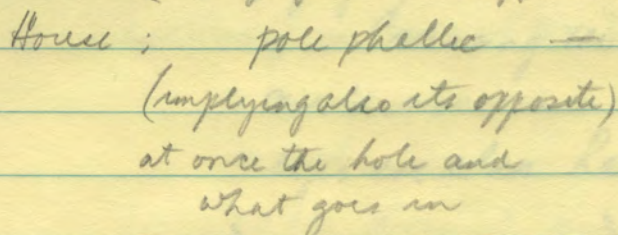 House; pole phallic —
(implying also its opposite)
at once the hole and
what goes in